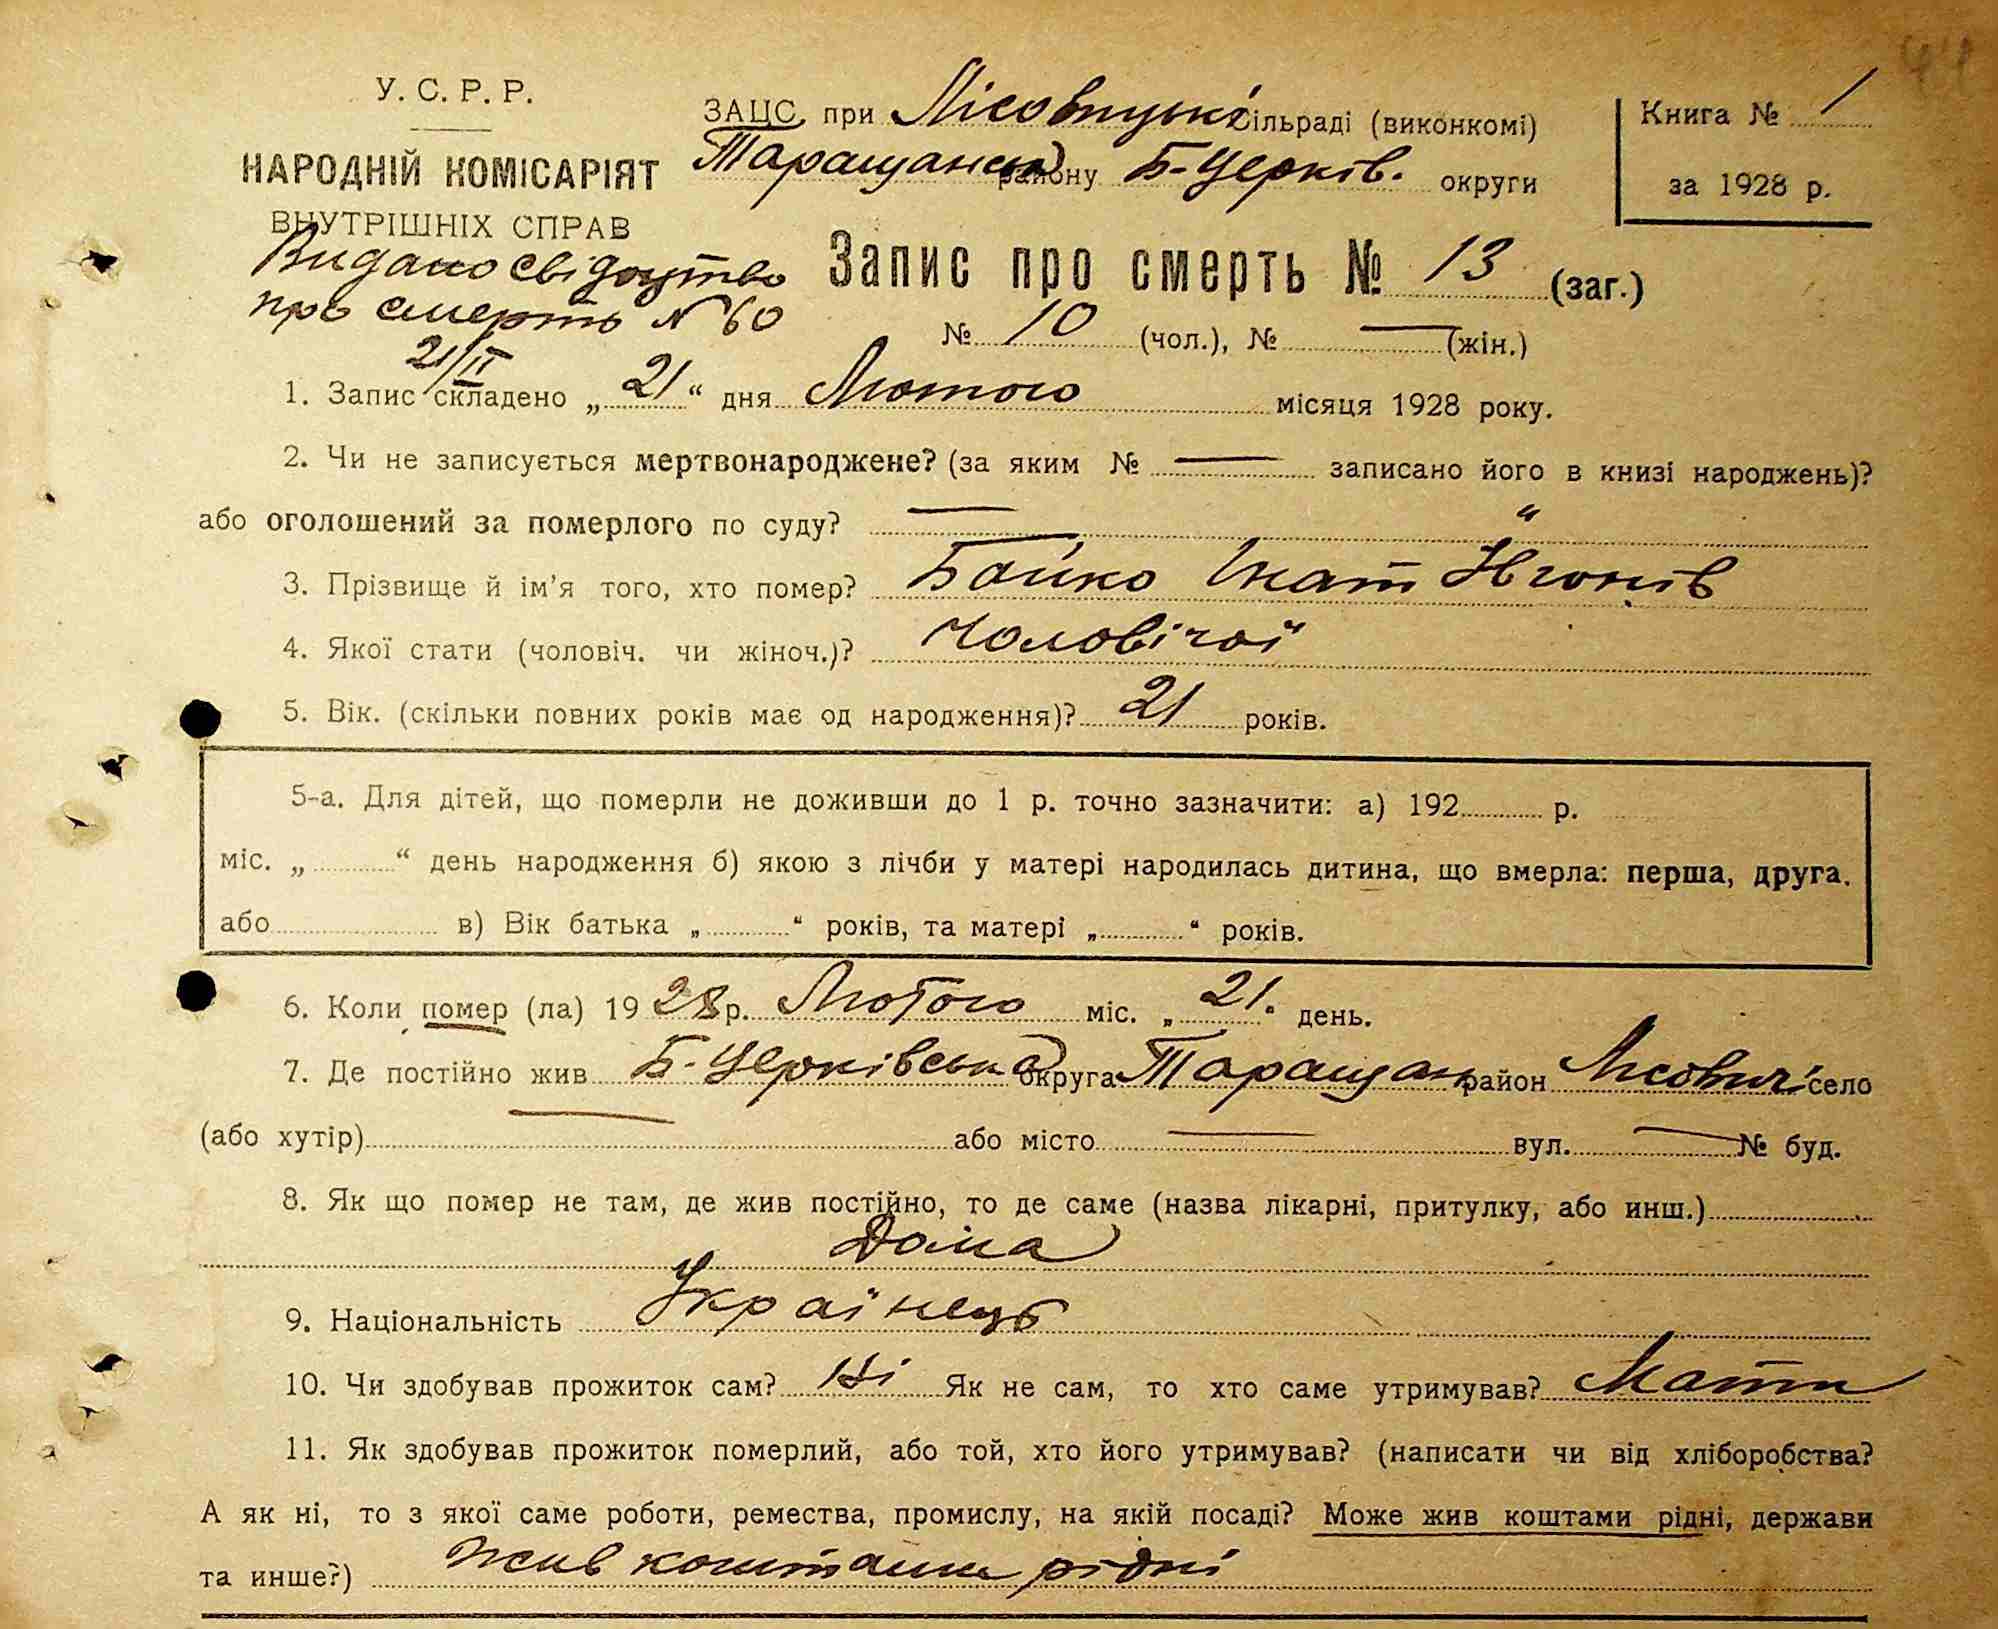 У. С. Р. Р.
НАРОДНІЙ КОМІСАРІЯТ
ВНУТРІШНІХ СПРАВ
ЗАЦС при Лісовицькі сільраді (виконкомі)
Таращанськ району Б-Церків. округи
Книга № 1
за 1928 р.
Видано свідоцтво
про смерть N 60
21/II
Запис про смерть № 13 (заг.)
№ 10 (чол.), № — (жін.)
1. Запис складено „ 21 “ дня Лютого місяця 1928 року.
2. Чи не записується мертвонароджене? (за яким № — записано його в книзі народжень)?
або оголошений за померлого по суду? — „
3. Прізвище й ім’я того, хто помер? Бойко Ікат
4. Якої стати (чоловіч. чи жіноч.)? Чоловічої
5. Вік. (скільки повних років має од народження)? 21 років.
5-а. Для дітей, що померли не доживши до 1 р. точно зазначити: а) 192 р.
міс. „ “ день народження б) якою з лічби у матері народилась дитина, що вмерла: перша, друга,
або в) Вік батька „ “ років, та матері „ “ років.
6. Коли помер (ла) 1928 р. Лютого міс. „ 21 “ день.
7. Де постійно жив Б-Церківська округа Таращан район Лісовичі село
(або хутір) або місто — вул. — № буд.
8. Як що помер не там, де жив постійно, то де саме (назва лікарні, притулку, або инш.)
Дома
9. Національність Українець
10. Чи здобував прожиток сам? Ні Як не сам, то хто саме утримував? Мати
11. Як здобував прожиток померлий, або той, хто його утримував? (написати чи від хліборобства?
А як ні, то з якої саме роботи, ремества, промислу, на якій посаді? Може жив коштами рідні, держави
та инше?) Жив коштами рідні